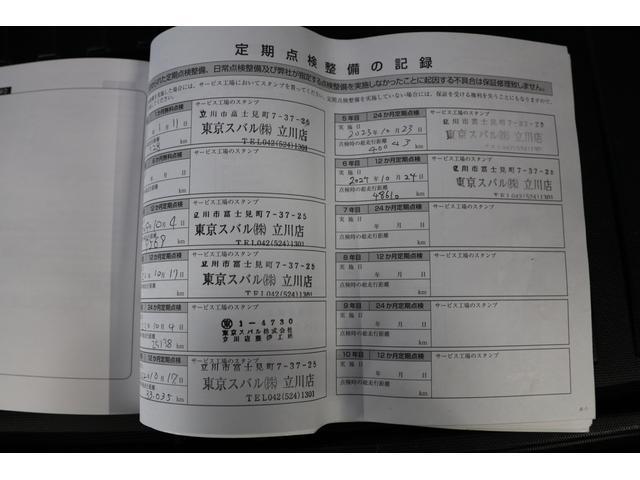 定期点検整備の記録
られた定期点検整備、日常点検整備及び弊社が指定する点検整備を実施しなかったことに起因する不具合は保証修理致しません。
サービス工場においてスタンプを貰ってください。定期点検整備を実施していない場合には、保証を受ける権利を失うことにもなりますので、
ください。
か月無料点検
サービス工場のスタンプ
1月11日
立川市富士見町7-37-25
東京スバル㈱ 立川店
TEL042(524)1301
km
か月無料点検
サービス工場のスタンプ
立川市富士見町7-37-25
東京スバル㈱ 立川店
TEL042(524)1301
km
12か月定期点検
サービス工場のスタンプ
年10月4日
立川市富士見町7-37-25
東京スバル㈱ 立川店
TEL042(524)1301
km
か月定期点検
サービス工場のスタンプ
年10月17日
立川市富士見町7-37-25
東京スバル㈱ 立川店
TEL042(524)1301
km
か月定期点検
サービス工場のスタンプ
年10月4日
1-4730
東京スバル株式会社
立川店整備工場
25138 km
12か月定期点検
サービス工場のスタンプ
10月17日
立川市富士見町7-37-25
東京スバル㈱ 立川店
TEL042(524)1301
33,035 km
5年目 24か月定期点検
サービス工場のスタンプ
実施日
2023年10月23日
立川市富士見町7-37-25
東京スバル㈱ 立川店
点検時の総走行距離
40043 km
6年目 12か月定期点検
サービス工場のスタンプ
実施日
2024年10月24日
立川市富士見町7-37-25
東京スバル㈱ 立川店
点検時の総走行距離
48610 km
7年目 24か月定期点検
サービス工場のスタンプ
実施日
年 月 日
点検時の総走行距離
km
8年目 12か月定期点検
サービス工場のスタンプ
実施日
年 月 日
点検時の総走行距離
km
9年目 24か月定期点検
サービス工場のスタンプ
実施日
年 月 日
点検時の総走行距離
km
10年目 12か月定期点検
サービス工場のスタンプ
実施日
年 月 日
点検時の総走行距離
km